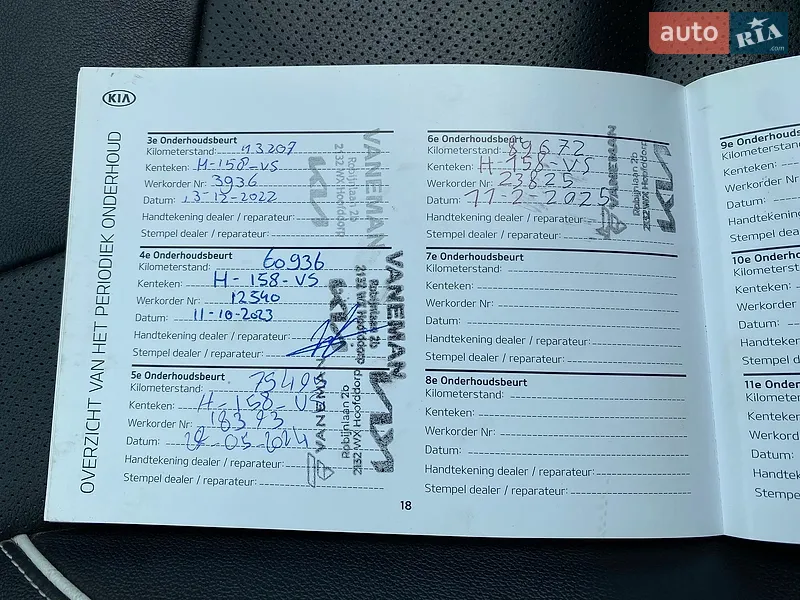 auto RIA .com
KIA
OVERZICHT VAN HET PERIODIEK ONDERHOUD
3e Onderhoudsbeurt
Kilometerstand:
Kenteken: H-158-VS
Werkorder Nr: 3936
Datum: 13-12-2022
Handtekening dealer / reparateur:
Stempel dealer / reparateur:
VANEMAN
Robijnlaan 2b
2132 WX Hoofddorp
KIA
4e Onderhoudsbeurt
Kilometerstand: 60936
Kenteken: H-158-VS
Werkorder Nr: 12540
Datum: 11-10-2023
Handtekening dealer / reparateur:
Stempel dealer / reparateur:
VANEMAN
Robijnlaan 2b
2132 WX Hoofddorp
KIA
5e Onderhoudsbeurt
Kilometerstand:
Kenteken: H-158-VS
Werkorder Nr: 18393
Datum: -05-2024
Handtekening dealer / reparateur:
Stempel dealer / reparateur:
VANEMAN
Robijnlaan 2b
2132 WX Hoofddorp
KIA
6e Onderhoudsbeurt
Kilometerstand: 89672
Kenteken: H-158-VS
Werkorder Nr: 23825
Datum: 11-2-2025
Handtekening dealer / reparateur:
Stempel dealer / reparateur:
VANEMAN
Robijnlaan 2b
2132 WX Hoofddorp
KIA
7e Onderhoudsbeurt
Kilometerstand:
Kenteken:
Werkorder Nr:
Datum:
Handtekening dealer / reparateur:
Stempel dealer / reparateur:
8e Onderhoudsbeurt
Kilometerstand:
Kenteken:
Werkorder Nr:
Datum:
Handtekening dealer / reparateur:
Stempel dealer / reparateur:
18
9e Onderhouds
Kilometerstand
Kenteken:
Werkorder Nr
Datum:
Handtekening
Stempel deale
10e Onderho
Kilometerst
Kenteken:
Werkorder
Datum:
Handteken
Stempel de
11e Onder
Kilometer
Kenteken
Werkord
Datum:
Handte
Stempe